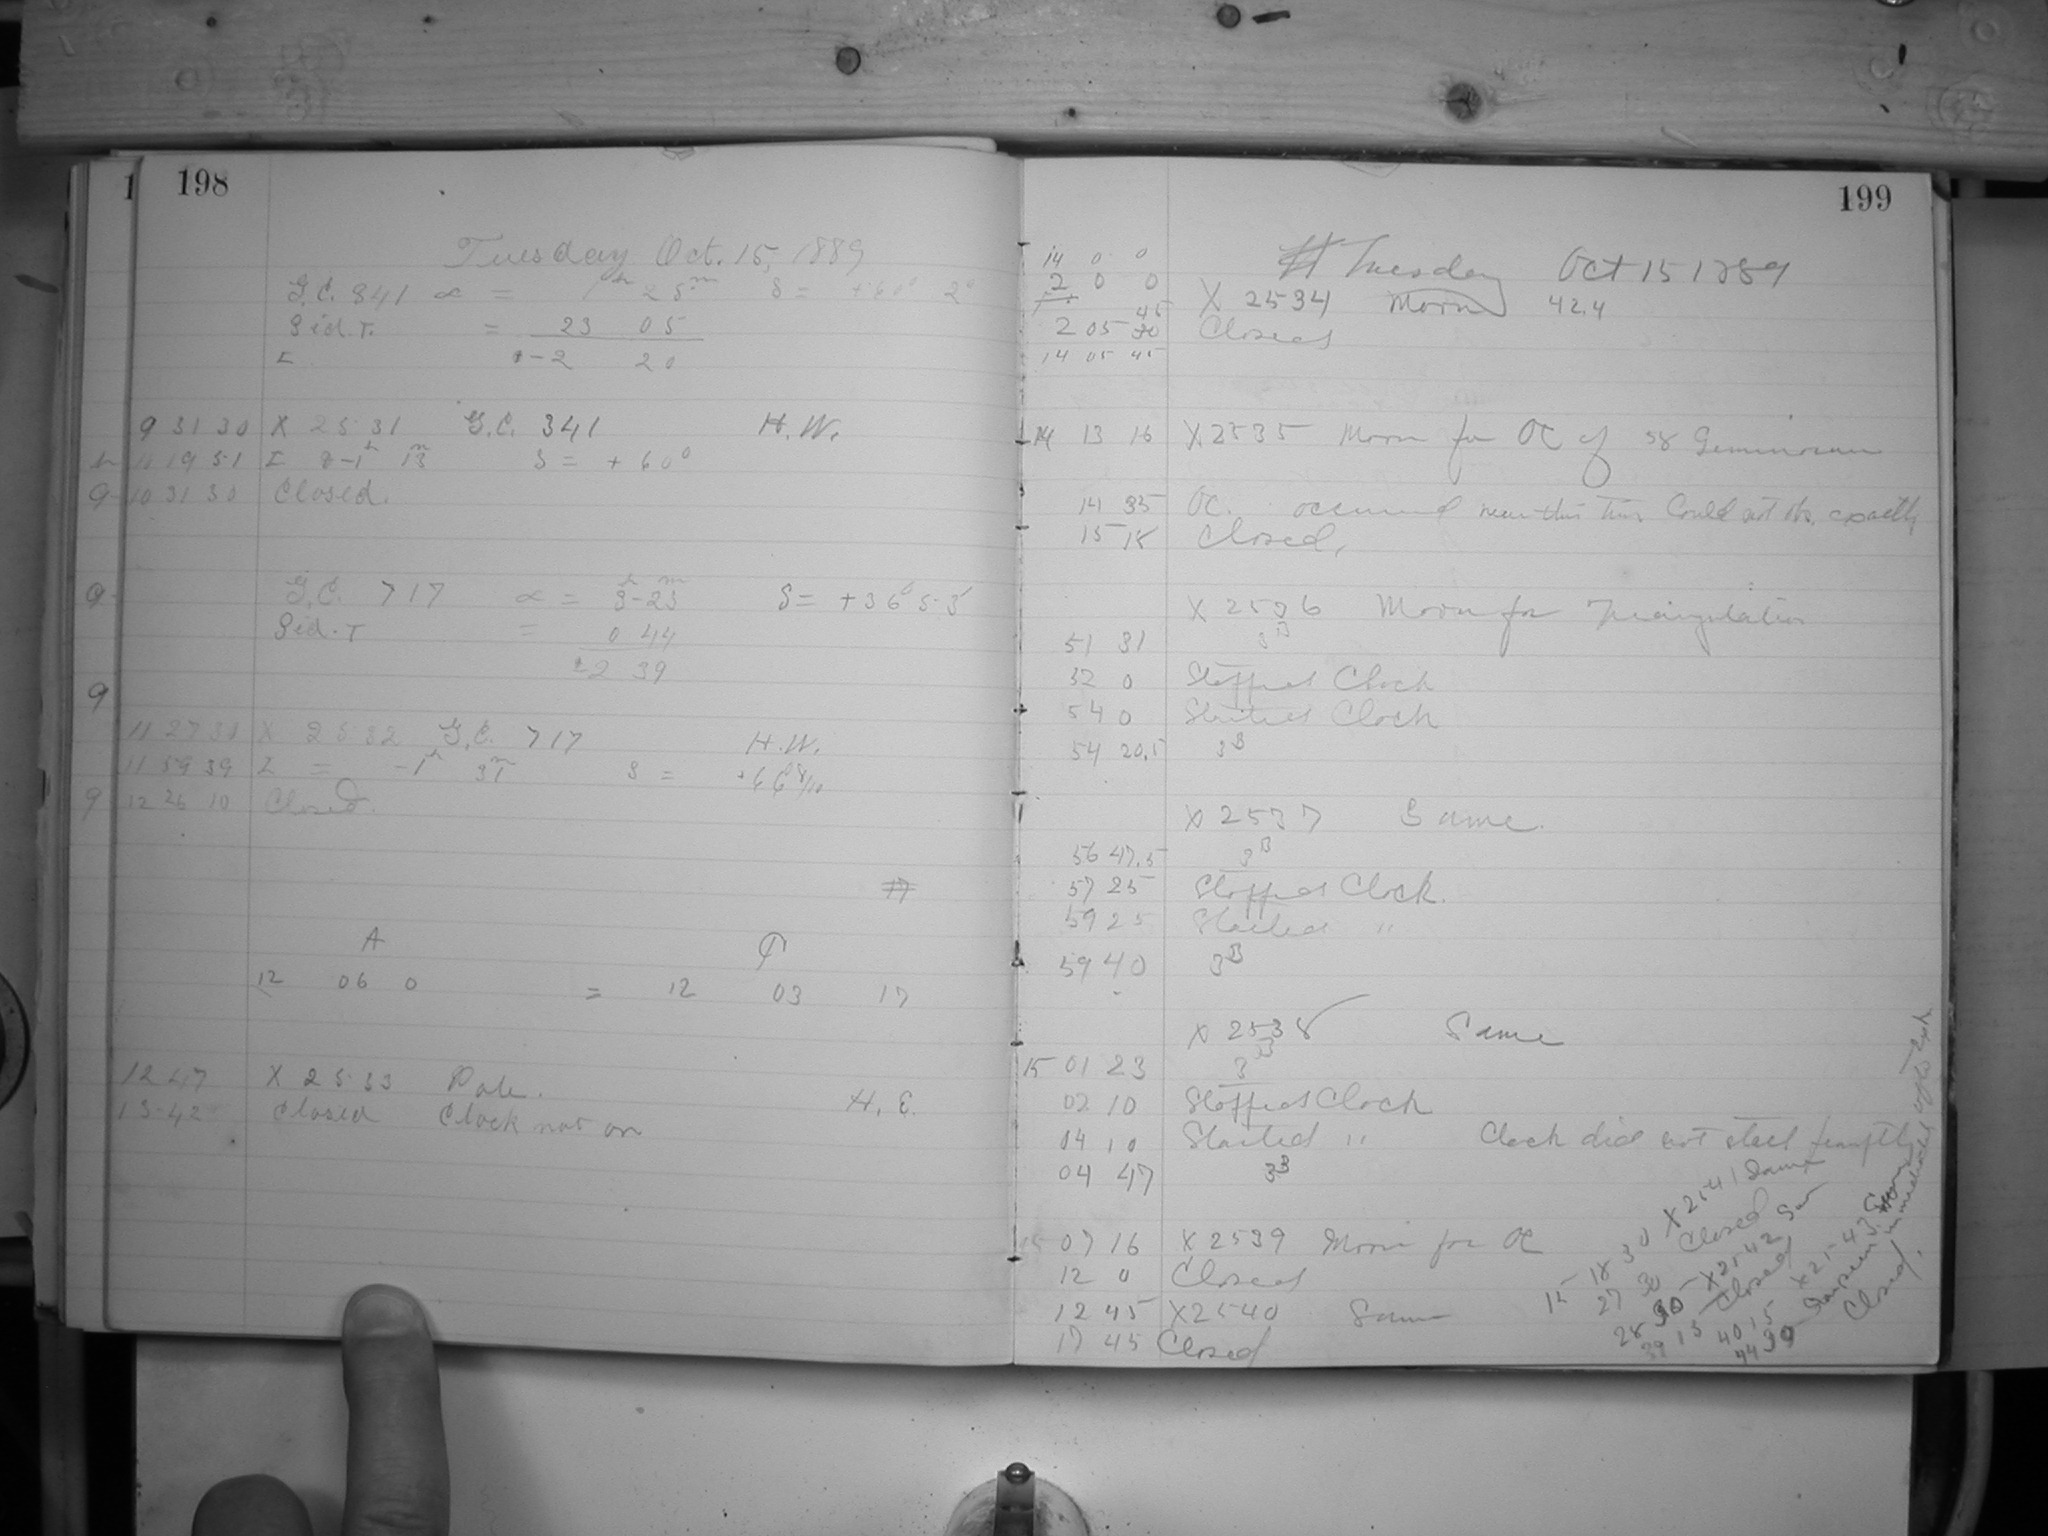 198
Tuesday Oct. 15, 1889
G.C. 341 α = 1h 25m δ = +60° 2°
Sid. T. = 23 05
I -2 20
9 31 30 X 2531 G.C. 341 H.W.
19 51 I 13m δ = +60°
10 31 30 Closed.
G.C. 717 α = 3h-23m δ = +36° 53'
Sid. T = 0 44
-2 39
11 27 30 X 2532 G.C. 717 H.W.
11 59 39 I = -1h 31m δ =
12 26 10 Closed.
A
12 06 0 = 12 03 17
12 47 X 2533 Pole. H. E.
13 42 Closed Clock not on
199
14 0 0 Tuesday Oct 15 1889
2 0 0 X 2534 Moon 42.4
2 05 45 Closed
14 05 45
14 13 16 X 2535 Moon for OC of 58 Geminorum
14 35 OC. occurred near this time Could not obs. exactly
15 18 Closed,
X 2536 Moon for Triangulation
51 31 3B
52 0 Stopped Clock
54 0 Started Clock
54 20.5 3B
X 2537 Same.
56 47.5 3B
57 25 Stopped Clock.
59 25 Started "
59 40 3B
X 2538 Same
15 01 23 3B
02 10 Stopped Clock
04 10 Started " Clock did not start promptly
04 47 3B
15 07 16 X 2539 Moon for OC
12 0 Closed
12 45 X 2540 Same
17 45 Closed
15 18 30 X 2541 Same
27 30 Closed
28 30 X 2542 Same
39 15 Closed
40 15 X 2543 Same
44 30 immediately after
Closed.